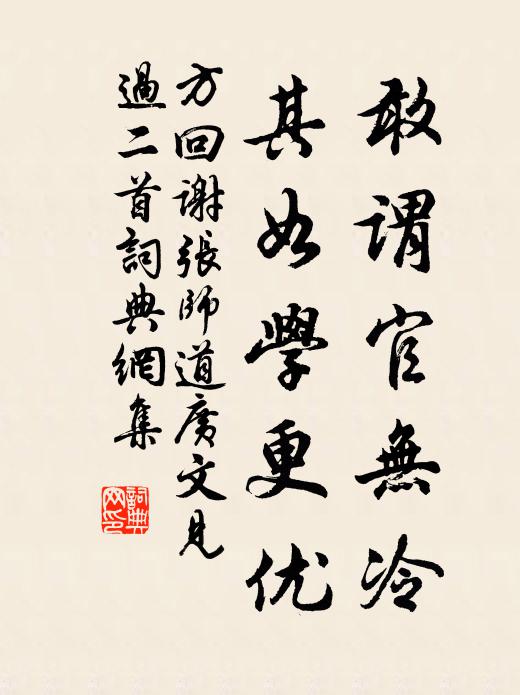 敢谓官無冷
其如學更优
方回谢張師道廣文見
過二首詞典網集
詞典
网印